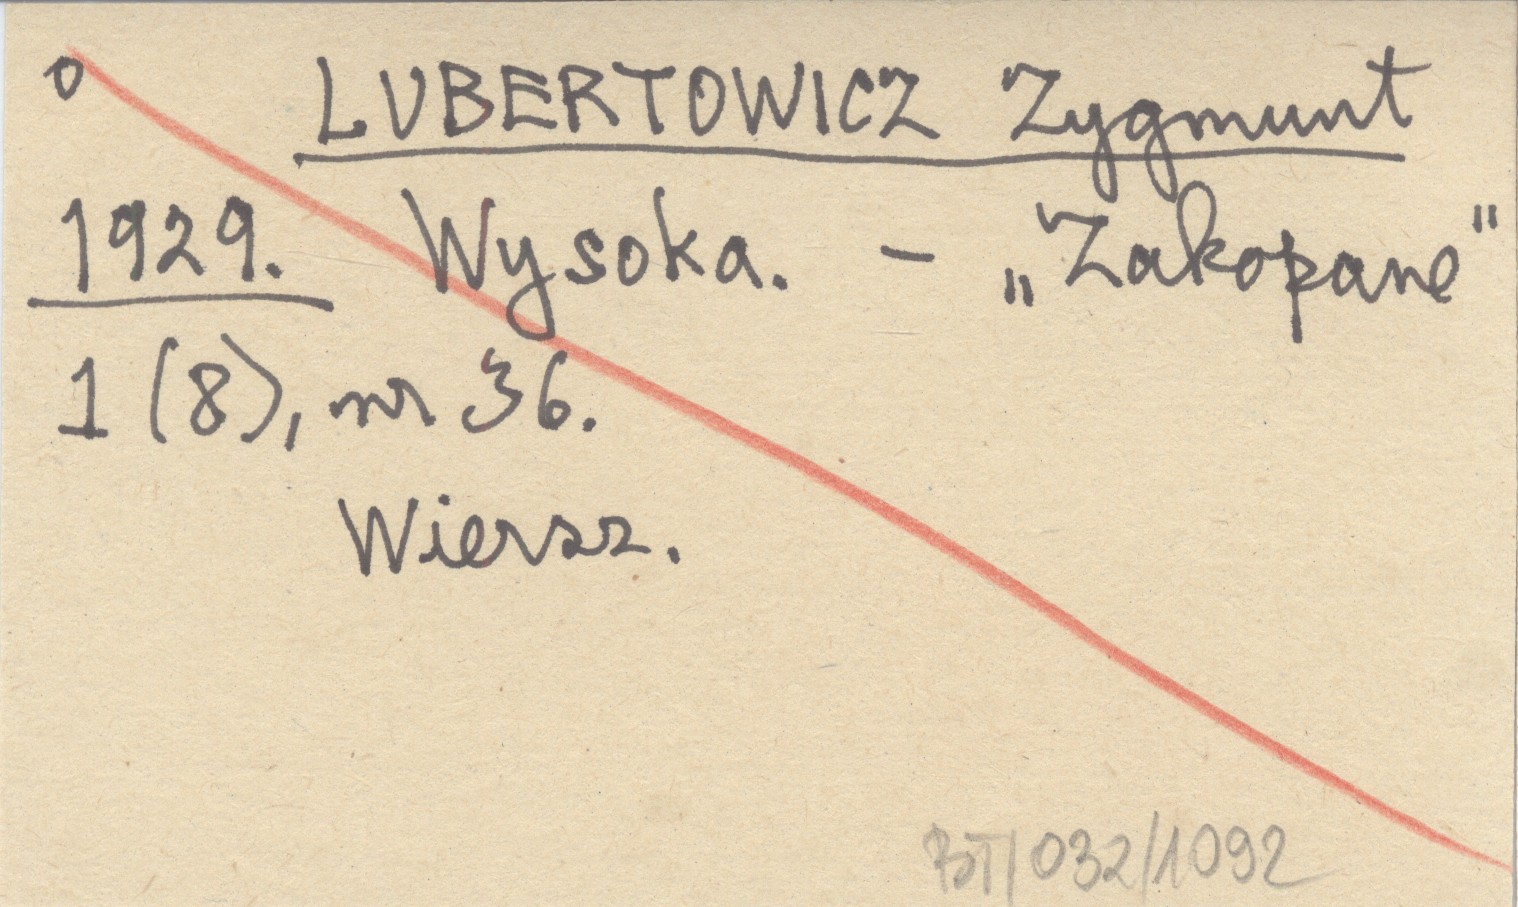 o LUBERTOWICZ Zygmunt
1929. Wysoka. – „Zakopane"
1 (8), nr 36.
Wiersz.
BT/032/1092